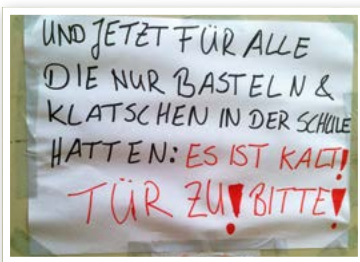 UND JETZT FÜR ALLE
DIE NUR BASTELN &
KLATSCHEN IN DER SCHULE
HATTEN: ES IST KALT!
TÜR ZU! BITTE!